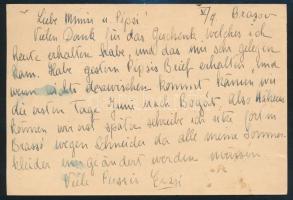 II/9 Brasov
Liebe Mimis u. Pipsi!
Vielen Dank für das Geschenk welches ich
heute erhalten habe, und das mir sehr gelegen
kam. Habe gestern Pipsis Brief erhalten und
wenn nichts dazwischen kommt kämen wir
die ersten Tage Juni nach Bogdt, also Näheres
können wir erst später schreiben ich sitze fort in
Brassó wegen Schneider da alle meine Sommer-
kleider umgeändert werden müssen
Viele Pussis Erzsi